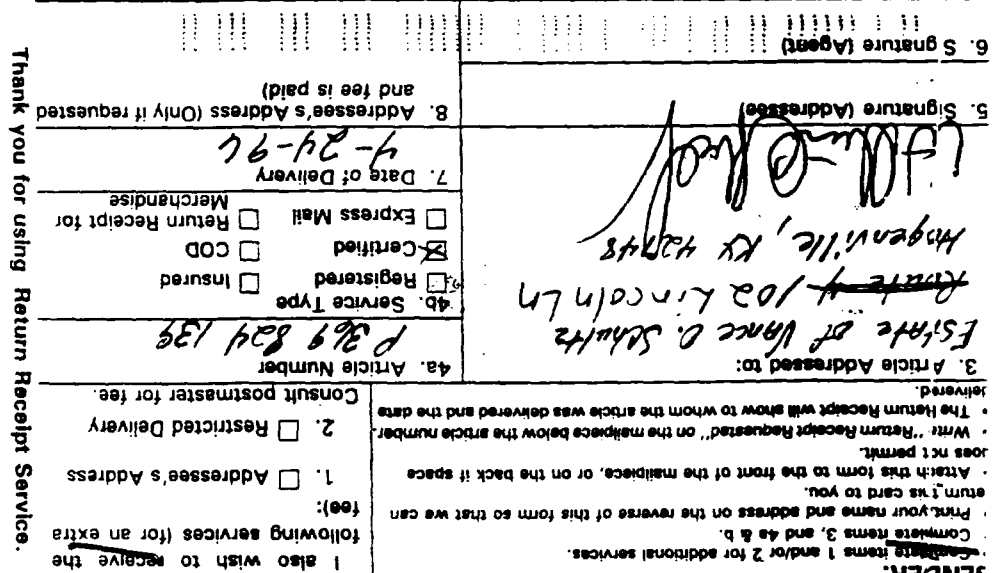 SENDER:
• Complete items 1 and/or 2 for additional services.
• Complete items 3, and 4a & b.
• Print your name and address on the reverse of this form so that we can
return this card to you.
• Attach this form to the front of the mailpiece, or on the back if space
does not permit.
• Write "Return Receipt Requested" on the mailpiece below the article number.
• The Return Receipt will show to whom the article was delivered and the date
delivered.
I also wish to receive the
following services (for an extra
fee):
1. ☐ Addressee's Address
2. ☐ Restricted Delivery
Consult postmaster for fee.
3. Article Addressed to:
Estate of Vance O. Schultz
Route 4 102 Lincoln Ln
Hogenville, KY 42748
4a. Article Number
P 369 824 139
4b. Service Type
☐ Registered ☐ Insured
☒ Certified ☐ COD
☐ Express Mail ☐ Return Receipt for
Merchandise
7. Date of Delivery
4-24-96
5. Signature (Addressee)
8. Addressee's Address (Only if requested
and fee is paid)
6. Signature (Agent)
Thank you for using Return Receipt Service.